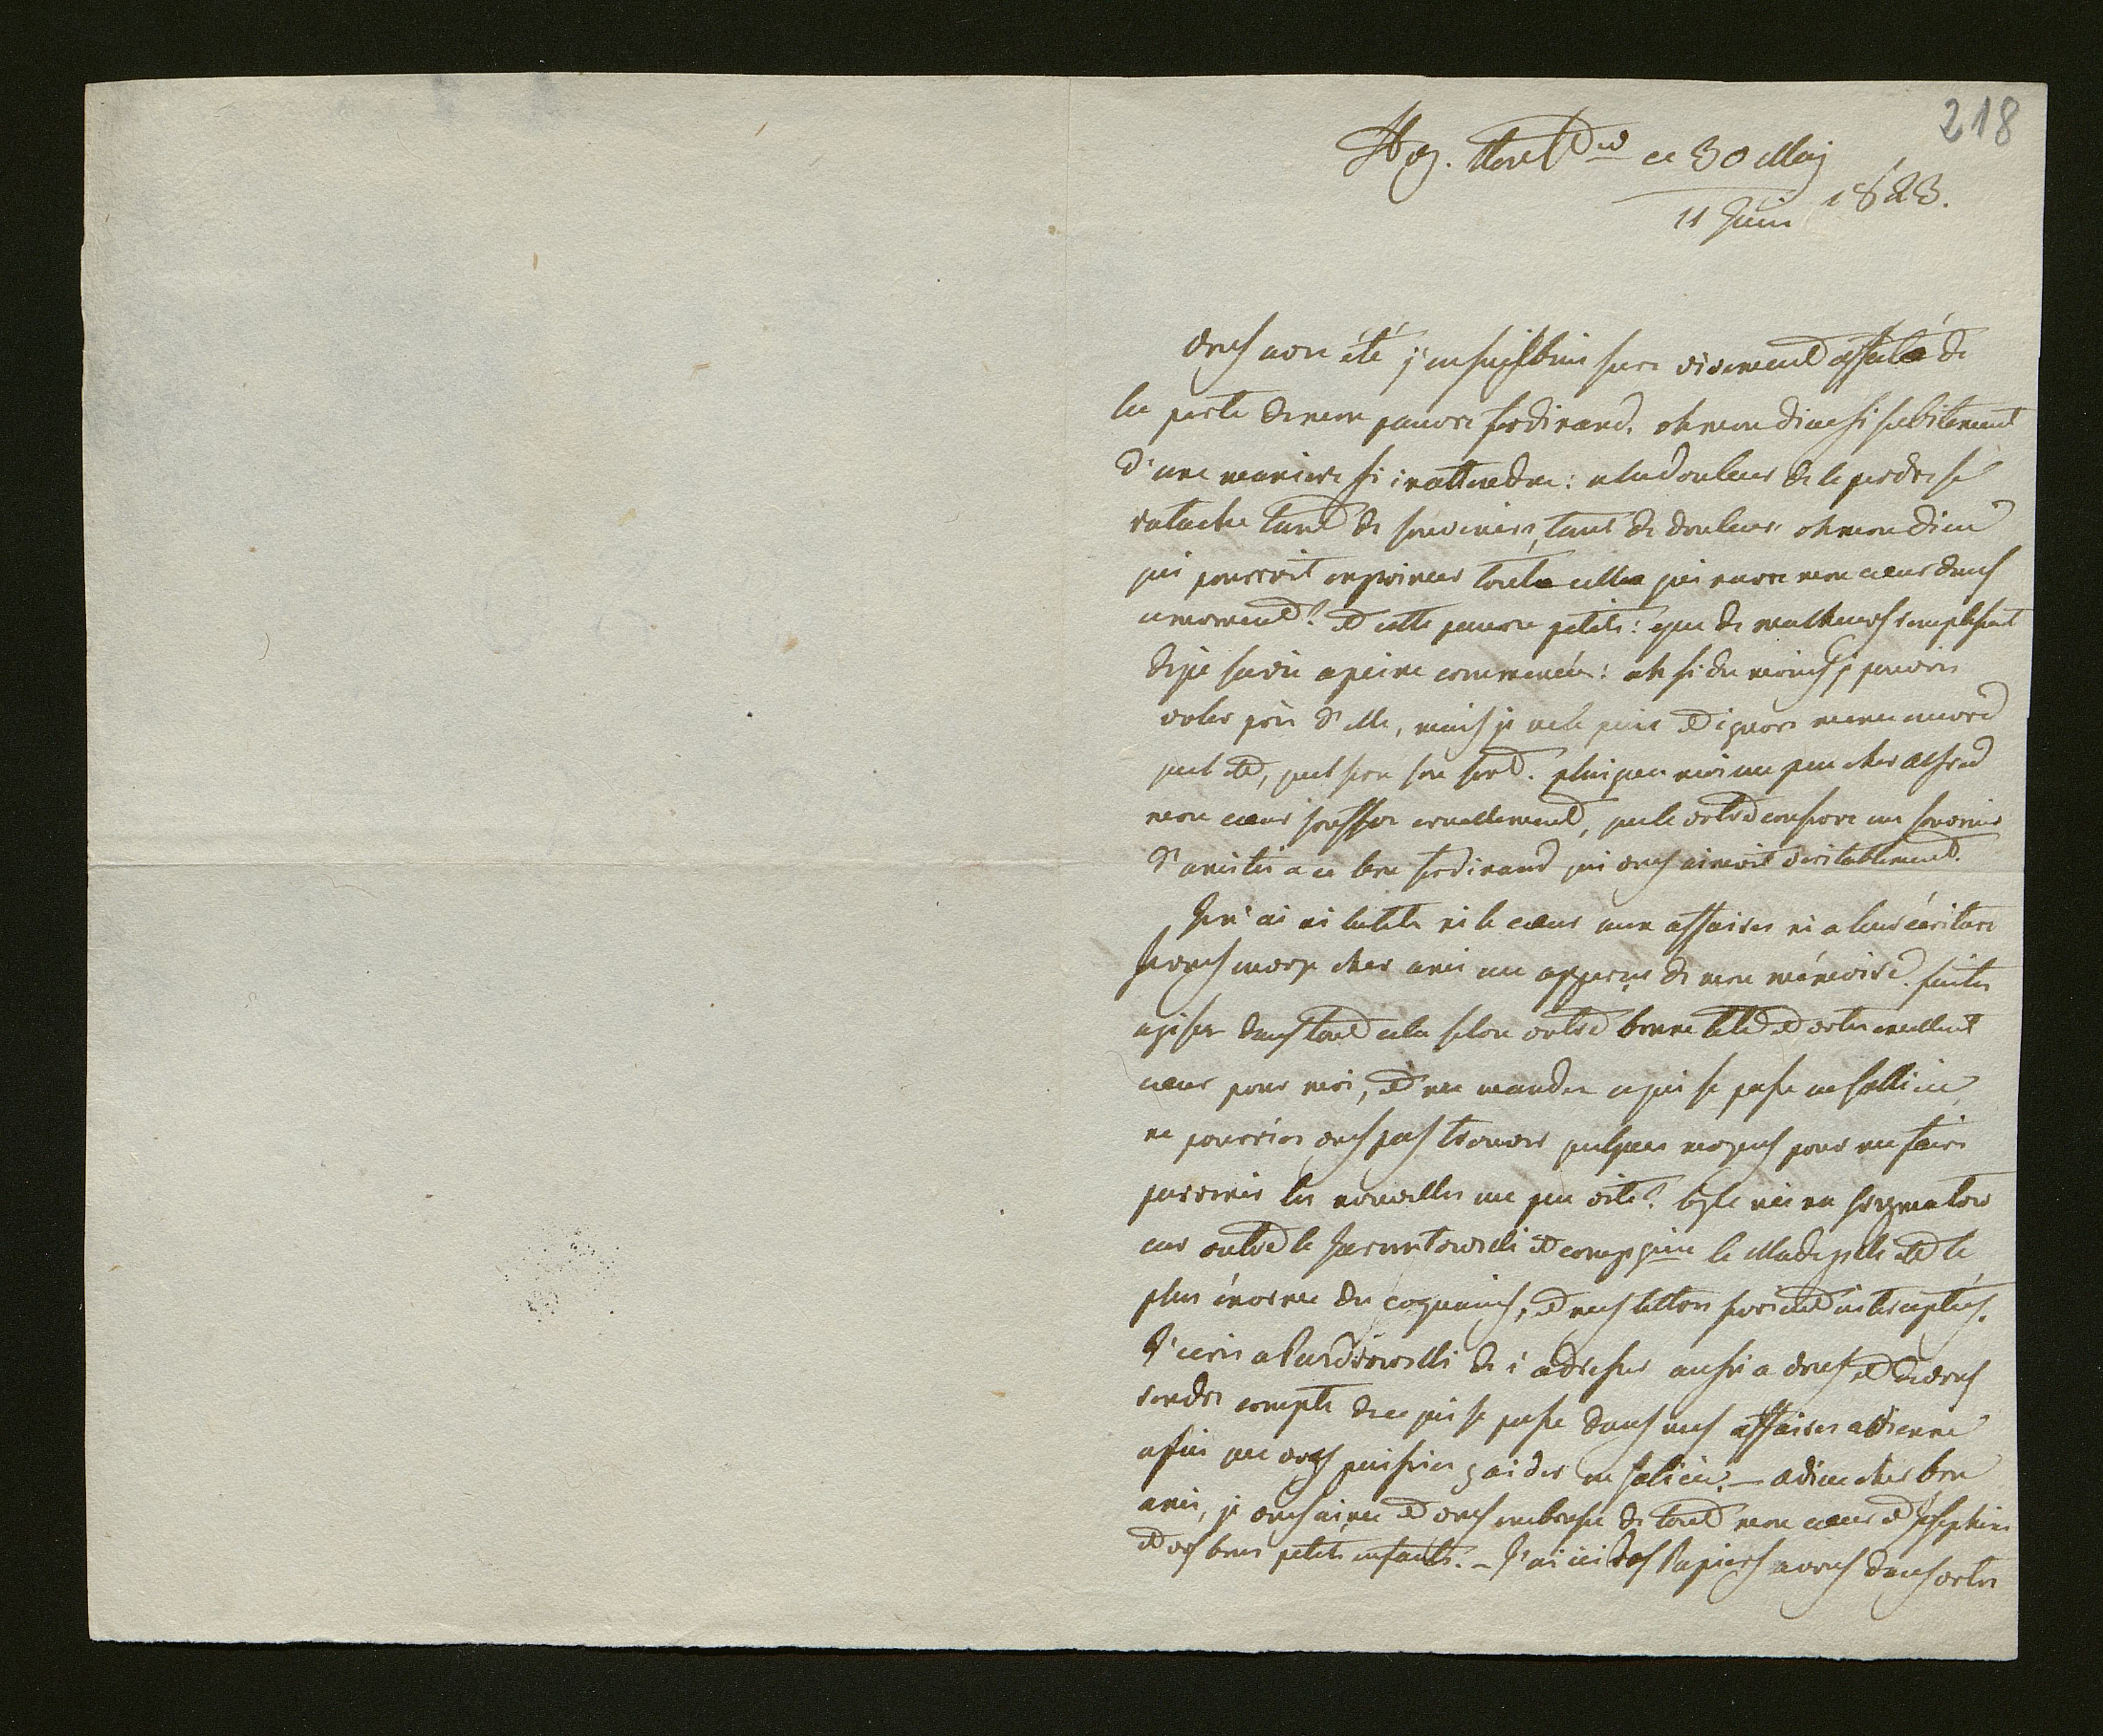 218
ce 30 Maj
11 Juin 1823.
Vous avez été j'en suis bien sure vivement affecté de
la perte de mon pauvre ferdinand. oh mon dieu si subitement
d'une maniere si inattendue: a la douleur de le perdre se
ratache tant de souvenirs, tant de douleur oh mon dieu
qui pourroit exprimer toute celle qui navre mon cœur dans
ce moment? et cette pauvre petite: que de malheurs remplissent
deja sa vie a peine commencée: ah si du moins je pouvois
voler près d'elle, mais je ne le puis et ignore meme encore
quel est, quel sera son sort. plaignez moi un peu cher Alfred
mon cœur souffre cruellement, que le votre conserve un souvenir
d'amitié a ce bon ferdinand qui vous aimoit veritablement.
Je n'ai ni la tete ni le cœur aux affaires ni a leur écriture
Je vous envoye cher ami un apperçu de mon mémoire. faites
agissez dans tout cela selon votre bonne tete et votre excellent
cœur pour moi, et me mandez ce qui se passe en Gallicie
ne pourriez vous pas trouver quelques moyens pour me faire
parvenir les nouvelles un peu vite?
car outre le et le est le
plus énorme des coquins, et mes lettres seroient interceptées.
J'ecris a de s'adresser aussi a vous et de vous
rendre compte de ce qui se passe dans mes affaires a Vienne
afin que vous puissiez y aider en Galicie. — adieu cher bon
ami, je vous aime et vous embrasse de tout mon cœur et Josephine
et vos bons petits enfants. – J'ai ici des papiers a vous dans votre